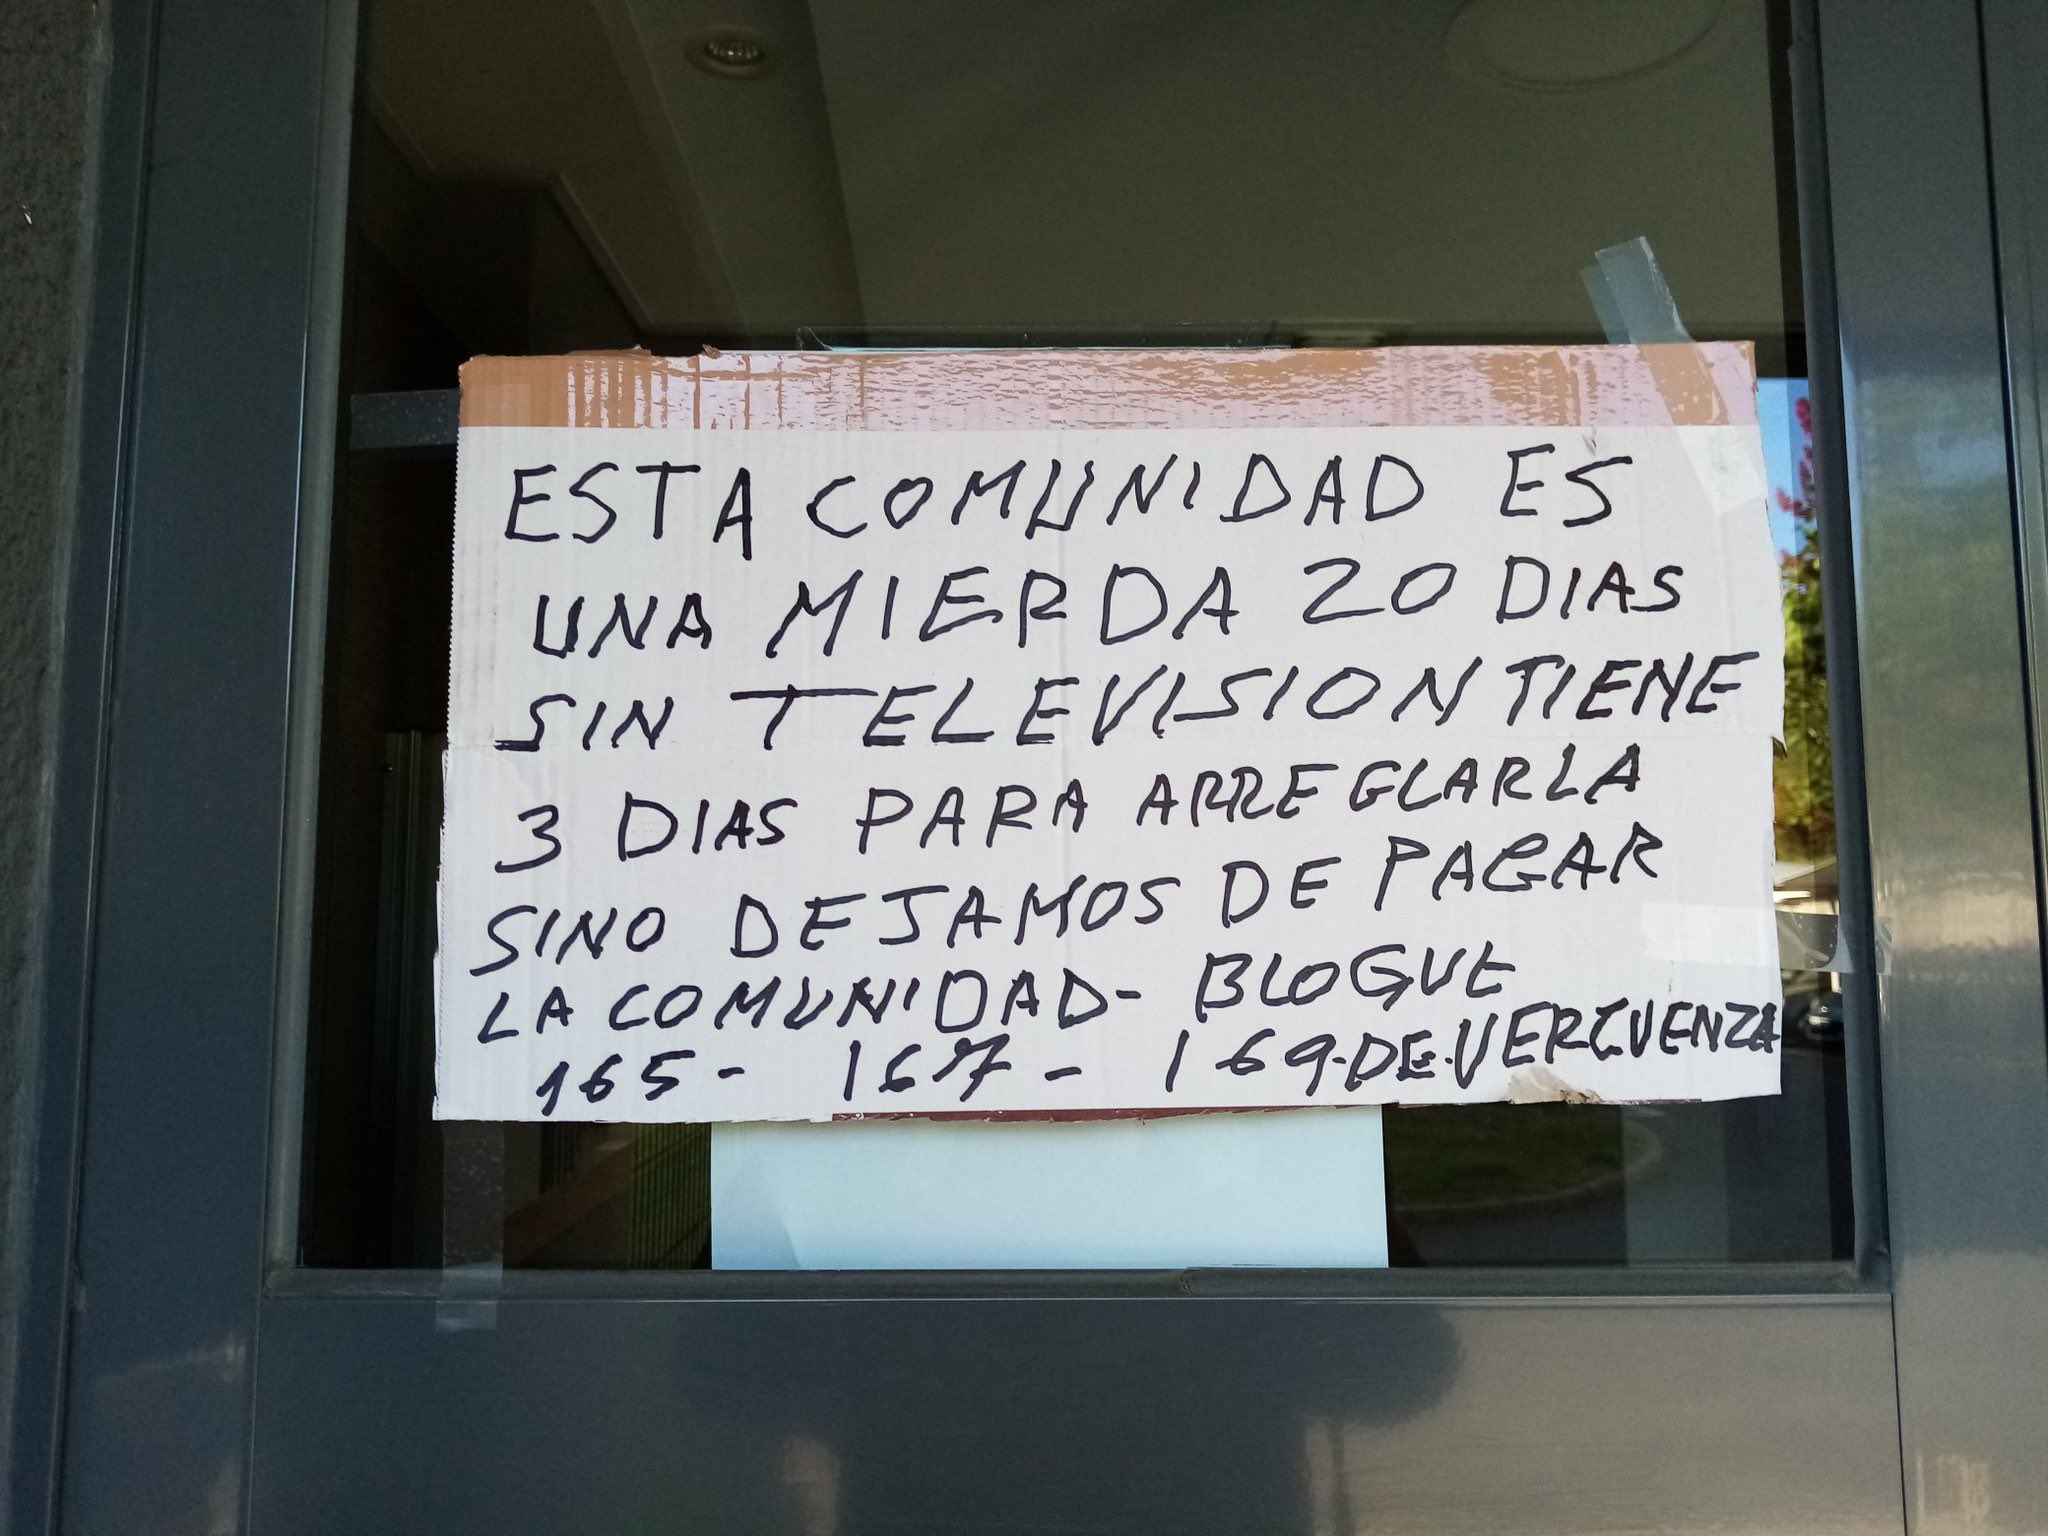 ESTA COMUNIDAD ES
UNA MIERDA 20 DIAS
SIN TELEVISION TIENE
3 DIAS PARA ARREGLARLA
SINO DEJAMOS DE PAGAR
LA COMUNIDAD- BLOGUE
165- 167- 169-DE-VERGUENZA